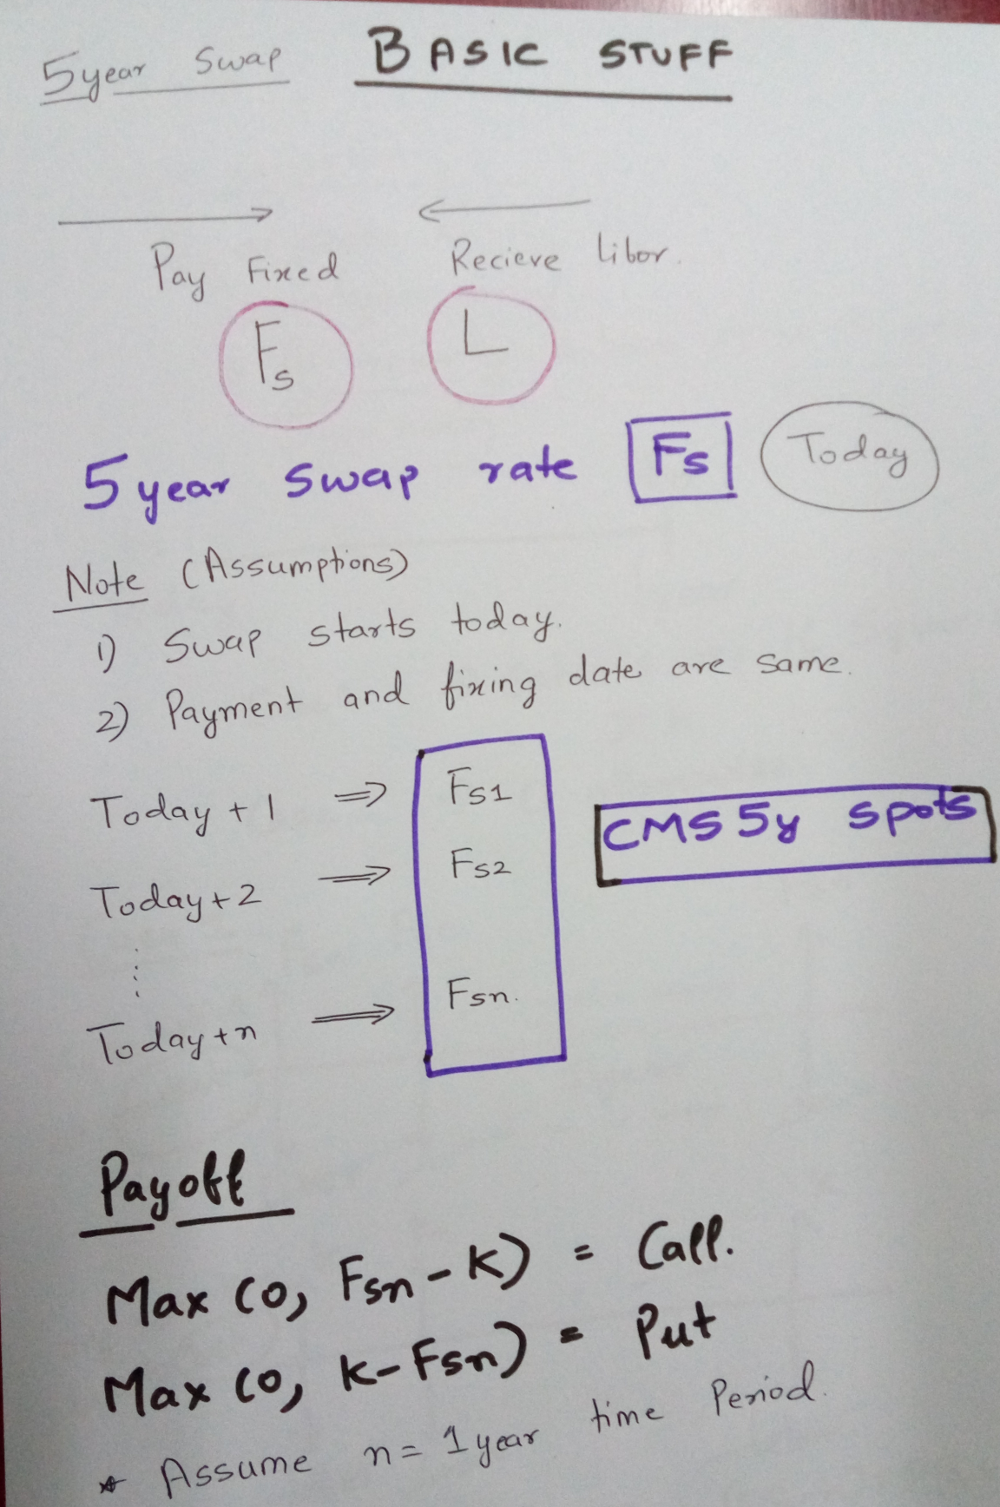 5year Swap BASIC STUFF
Pay Fixed Recieve Libor.
Fs L
5 year swap rate Fs Today
Note (Assumptions)
1) Swap starts today.
2) Payment and fixing date are same.
Today + 1 ⇒ Fs1
CMS 5y spots
Today+2 ⇒ Fs2
Today+n ⇒ Fsn.
Payoff
Max (0, Fsn - K) = Call.
Max (0, K-Fsn) = Put
* Assume n = 1 year time Period.